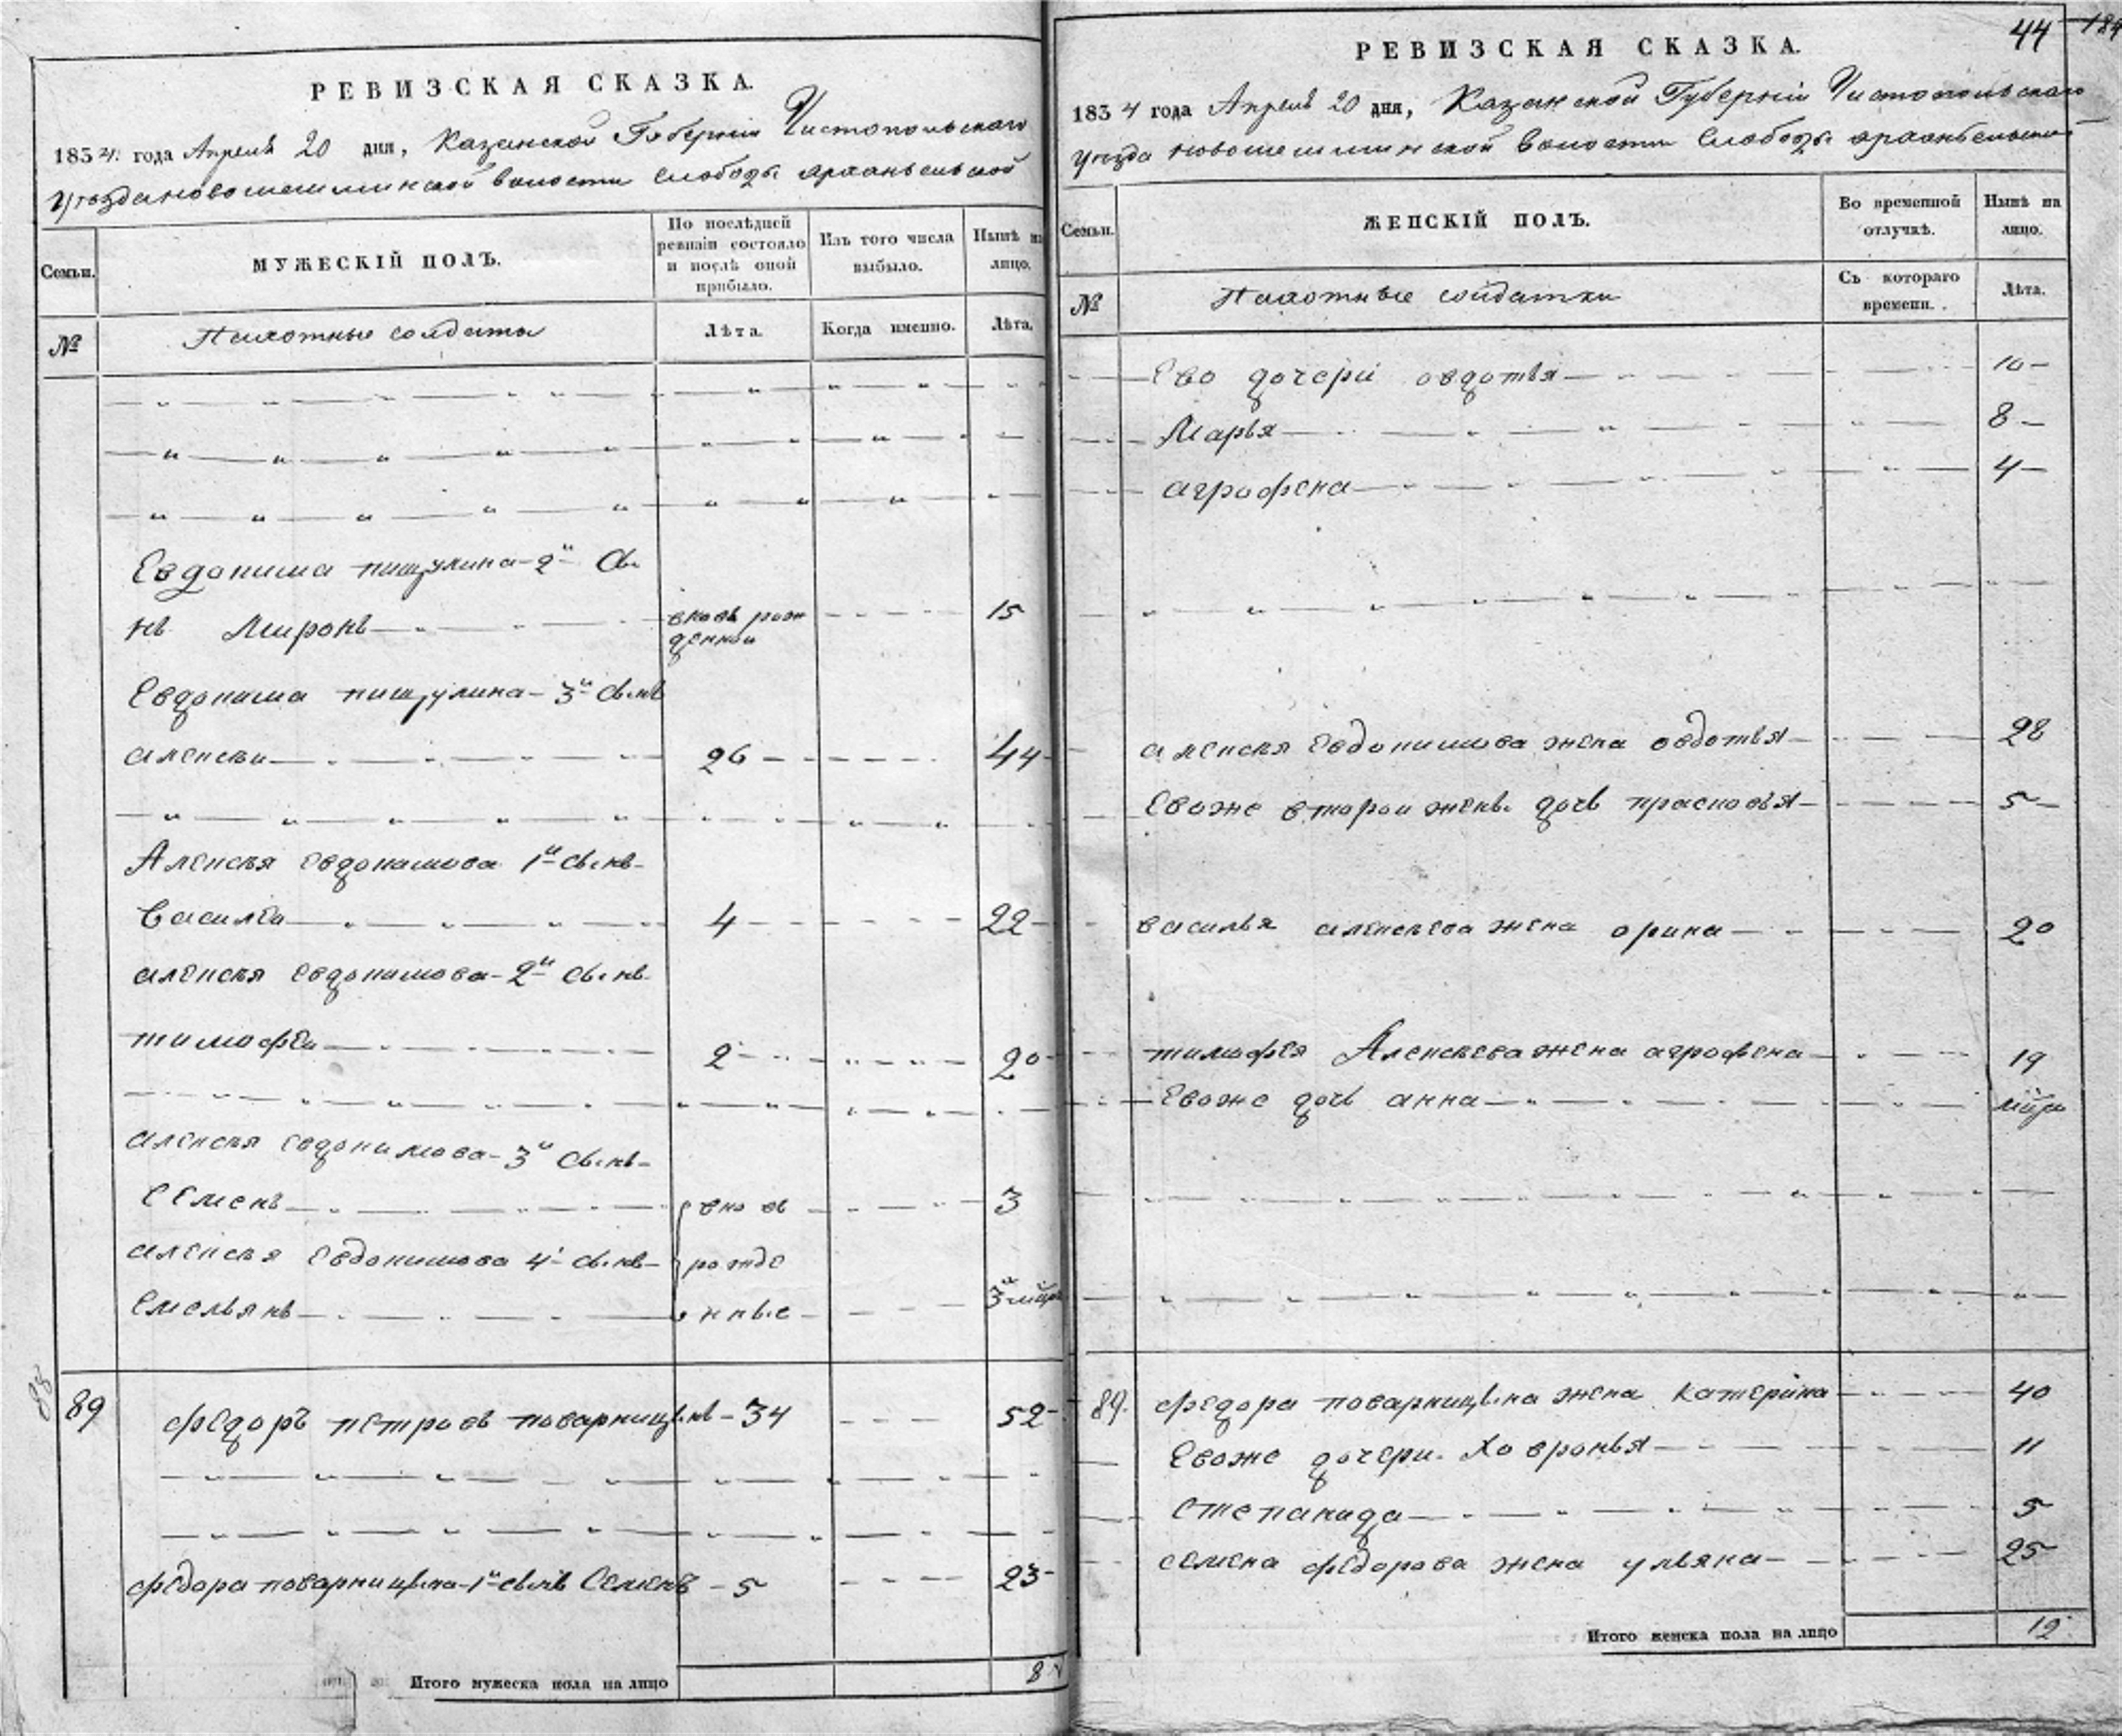 РЕВИЗСКАЯ СКАЗКА.
1834. года Апреля 20 дня, Казанской Губернии Чистопольскаго
Уезда новошешминской волости Слободы арханьельской
Семьи.
МУЖЕСКІЙ ПОЛЪ.
По послѣдней ревизіи состояло и послѣ оной прибыло.
Изъ того числа выбыло.
Нынѣ на лицо.
№
Пахотные солдаты
Лѣта.
Когда именно.
Лѣта.
Евдокима пищулина 2й сы
нъ Миронъ вновь рож 15
денной
Евдокима пищулина 3й сынъ
алексеи 26 44
Алексея евдокимова 1й сынъ
Василеи 4 22
алексея евдокимова 2й сынъ
тимофеи 2 20
алексея евдокимова 3й сынъ
семенъ вновь 3
алексея евдокимова 4й сынъ рожде
емельянъ нные 3й
88
89 федоръ петровъ поварницынъ 34 52
федора поварницына 1й сынъ Семенъ 5 23
Итого мужеска пола на лицо 8
44
184
РЕВИЗСКАЯ СКАЗКА.
1834 года Апрель 20 дня, Казанской Губерніи Чистопольскаго
уезда новошешминской волости Слободы арханьельской
Семьи.
ЖЕНСКІЙ ПОЛЪ.
Во временной отлучкѣ.
Нынѣ на лицо.
№
Пахотные солдатки
Съ котораго времени.
Лѣта.
Ево дочери овдотья 10
Марья 8
агрофена 4
алексея Евдокимова жена овдотья 28
Евоже второи жены дочь прасковья 5
василья алексеева жена орина 20
тимофея Алексеева жена агрофена 19
Евоже дочь анна
89. федора поварницына жена катерина 40
Евоже дочери Ховронья 11
степанида 5
семена федорова жена ульяна 25
Итого женска пола на лицо 12